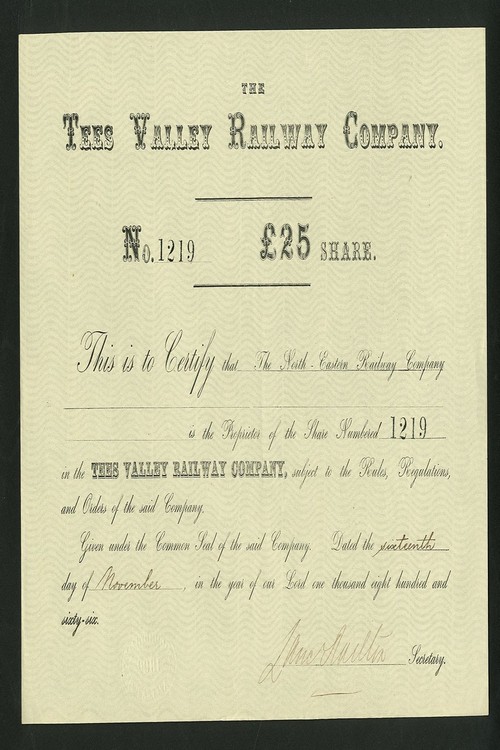 THE
TEES VALLEY RAILWAY COMPANY.
No. 1219 £25 SHARE.
This is to Certify that The North-Eastern Railway Company
is the Proprietor of the Share Numbered 1219
in the TEES VALLEY RAILWAY COMPANY, subject to the Rules, Regulations,
and Orders of the said Company.
Given under the Common Seal of the said Company. Dated the sixteenth
day of November, in the year of our Lord one thousand eight hundred and
sixty-six.
Secretary.